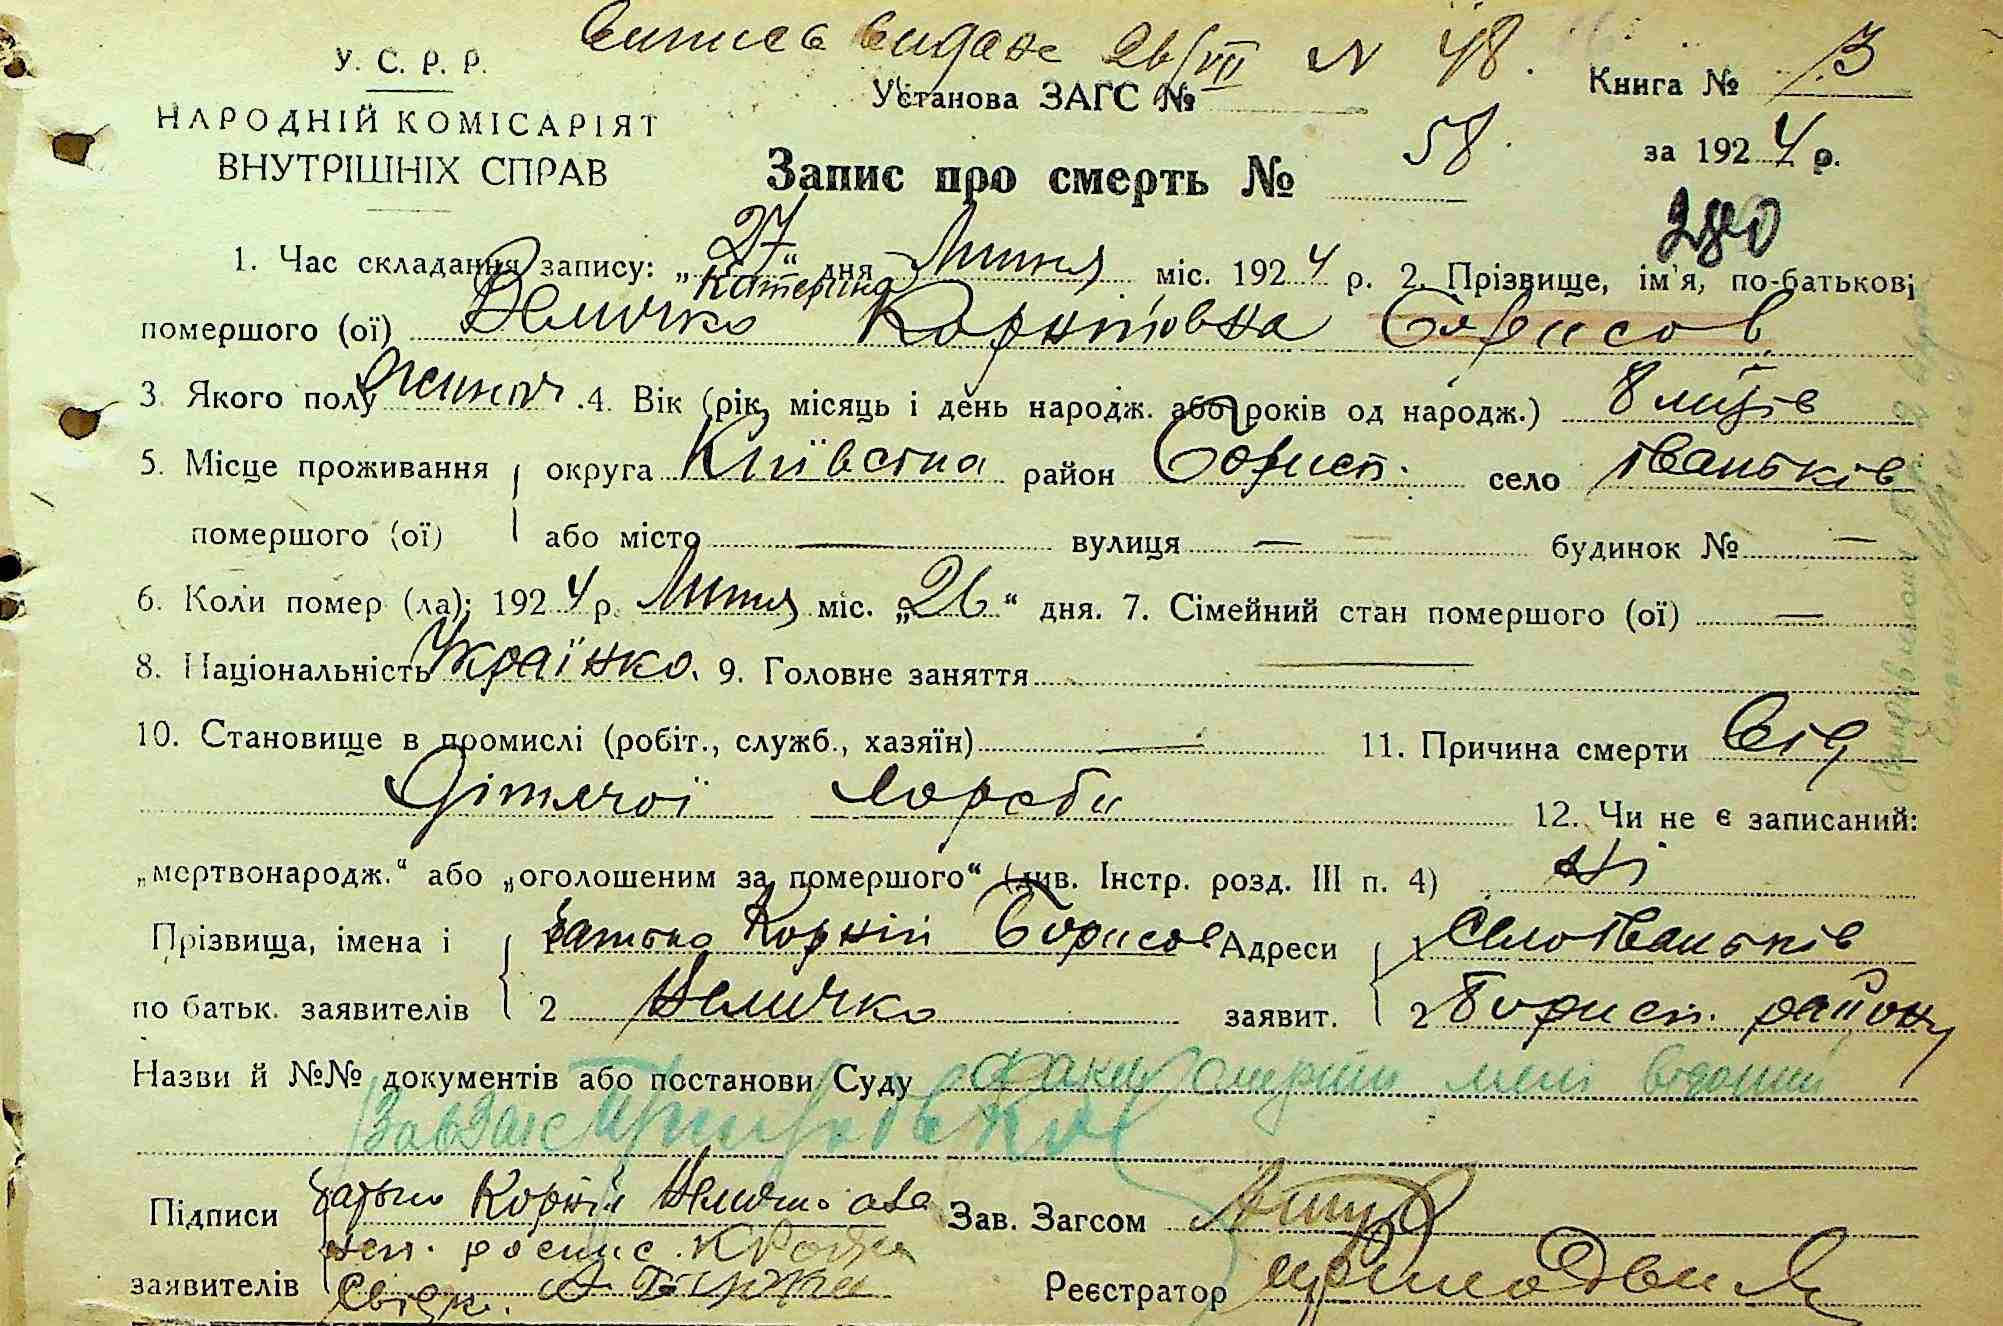 Випись видана 26/VII № 48.
У. С. Р. Р.
Установа ЗАГС №
Книга № 3
НАРОДНІЙ КОМІСАРІЯТ
ВНУТРІШНІХ СПРАВ
за 1924 р.
Запис про смерть № 58
280
1. Час складання запису: „27“ дня Липня міс. 1924 р. 2. Прізвище, ім'я, по-батькові
Катерина
помершого (ої) Величко Корніївна Борисов
3. Якого полу жиноч. 4. Вік (рік, місяць і день народж. або років од народж.) 8
5. Місце проживання округа Київська район Борисп. село Іваньків
помершого (ої) або місто — вулиця — будинок № —
6. Коли помер (ла): 1924 р. Липня міс. „26“ дня. 7. Сімейний стан помершого (ої) —
8. Національність Українка. 9. Головне заняття —
10. Становище в промислі (робіт., служб., хазяїн) — 11. Причина смерти Від
дітячої хороби
12. Чи не є записаний:
„мертвонародж.“ або „оголошеним за помершого“ (див. Інстр. розд. III п. 4) Ні
Прізвища, імена і 1 Батько Корній Борисов Адреси 1 Село Іваньків
по батьк. заявителів 2 Величко заявит. 2 Борисп. району
Назви й №№ документів або постанови Суду факт смерти мені відомий
ЗавЗагс
Підписи Батько Корній Величко а за Зав. Загсом
неп. роспис.
заявителів Свідк. Реєстратор